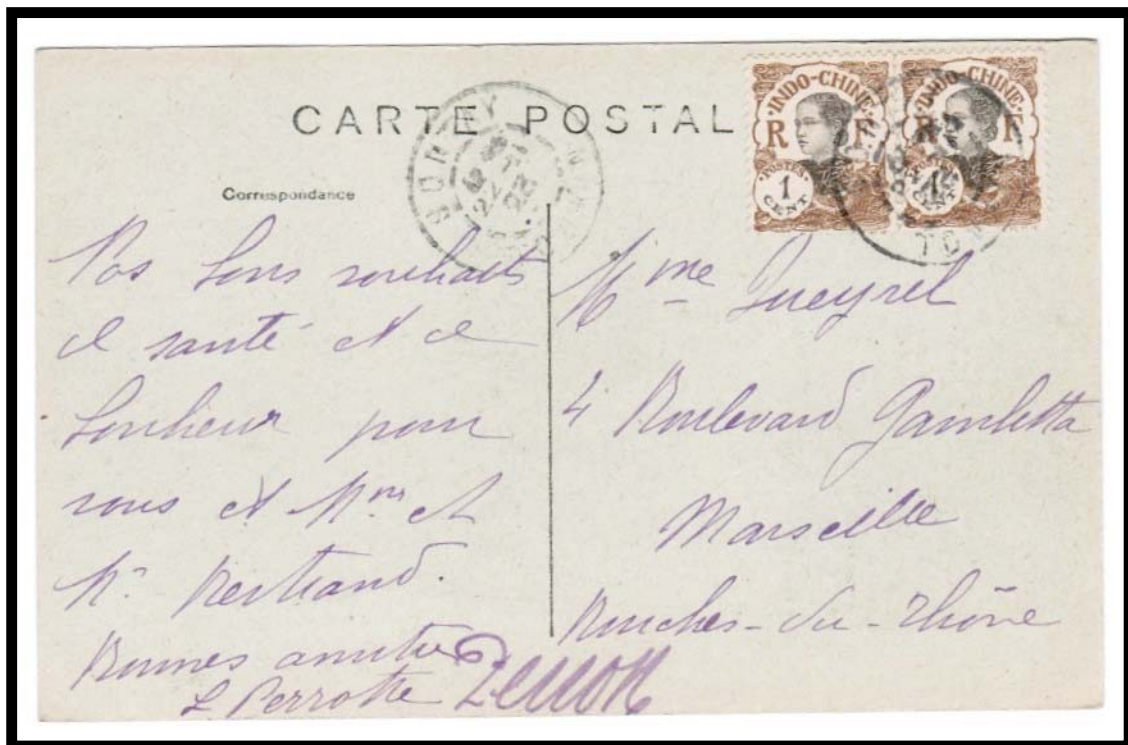 CARTE POSTAL
INDO-CHINE
R F
POSTES
1
CENT
INDO-CHINE
R F
1
CENT
TON
Correspondance
Vos bons souhaits
de santé et de
bonheur pour
vous et Mme et
Mr Bertrand.
Bonnes amitiés
L Perrotte
Mme Gueyrel
4 Boulevard Gambetta
Marseille
Bouches-du-Rhône